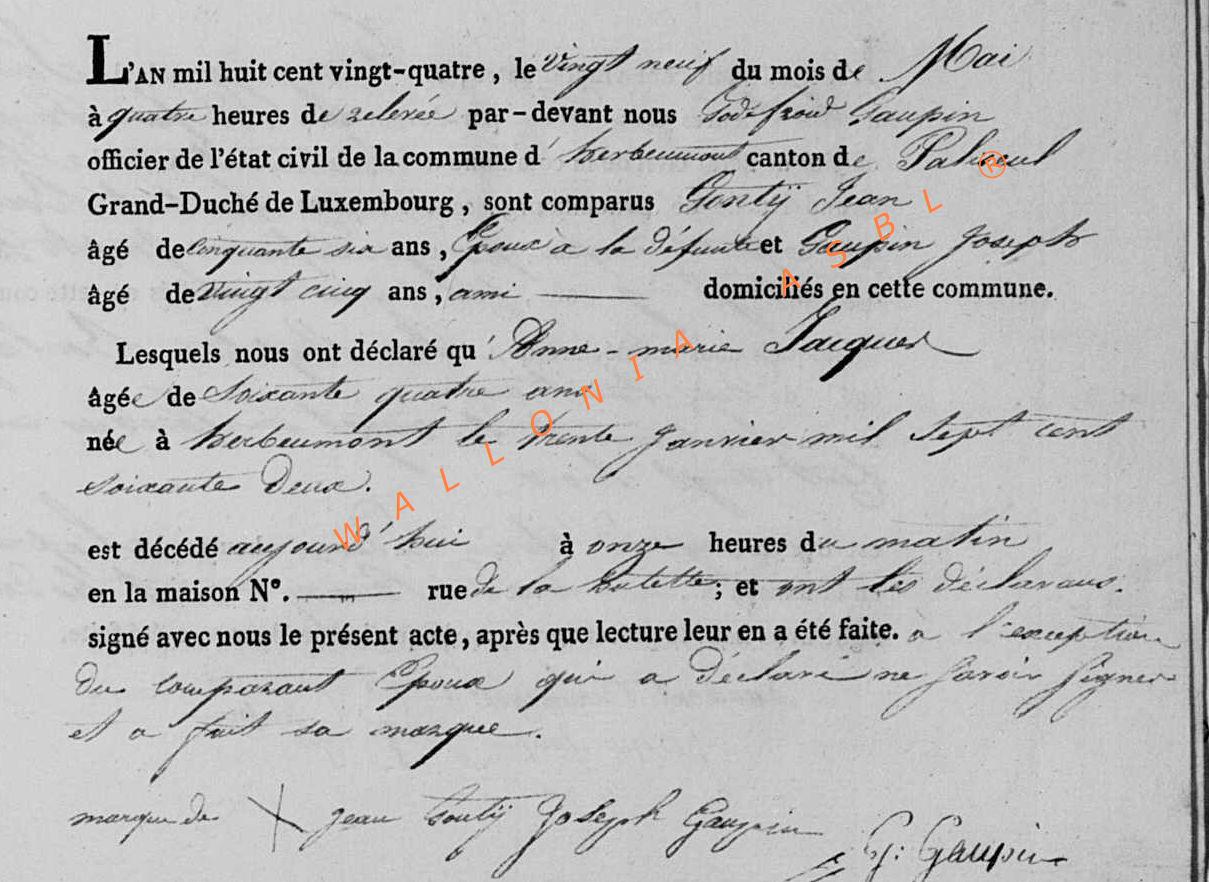 L'AN mil huit cent vingt-quatre, le vingt neuf du mois de Mai
à quatre heures de relevée par-devant nous Godefroid Gaupin
officier de l'état civil de la commune d'herbeumont canton de Paliseul
Grand-Duché de Luxembourg, sont comparus Gontÿ Jean
âgé de cinquante six ans, Epoux à la défunte et Gaupin Joseph
âgé de vingt cinq ans, ami domiciliés en cette commune.
Lesquels nous ont déclaré qu'Anne-marie Jacques
âgée de Soixante quatre ans
née à herbeumont le trente Janvier mil Sept cent
soixante Deux.
est décédé aujourd'hui à onze heures du matin
en la maison N°. rue de la ; et ont les déclarans.
signé avec nous le présent acte, après que lecture leur en a été faite. à l'exception
du comparant Epoux qui a déclaré ne Savoir Signer
et a fait sa marque.
marque de X Jean Gontÿ Joseph Gaupin
G: Gaupin
WALLONIA ASBL ®